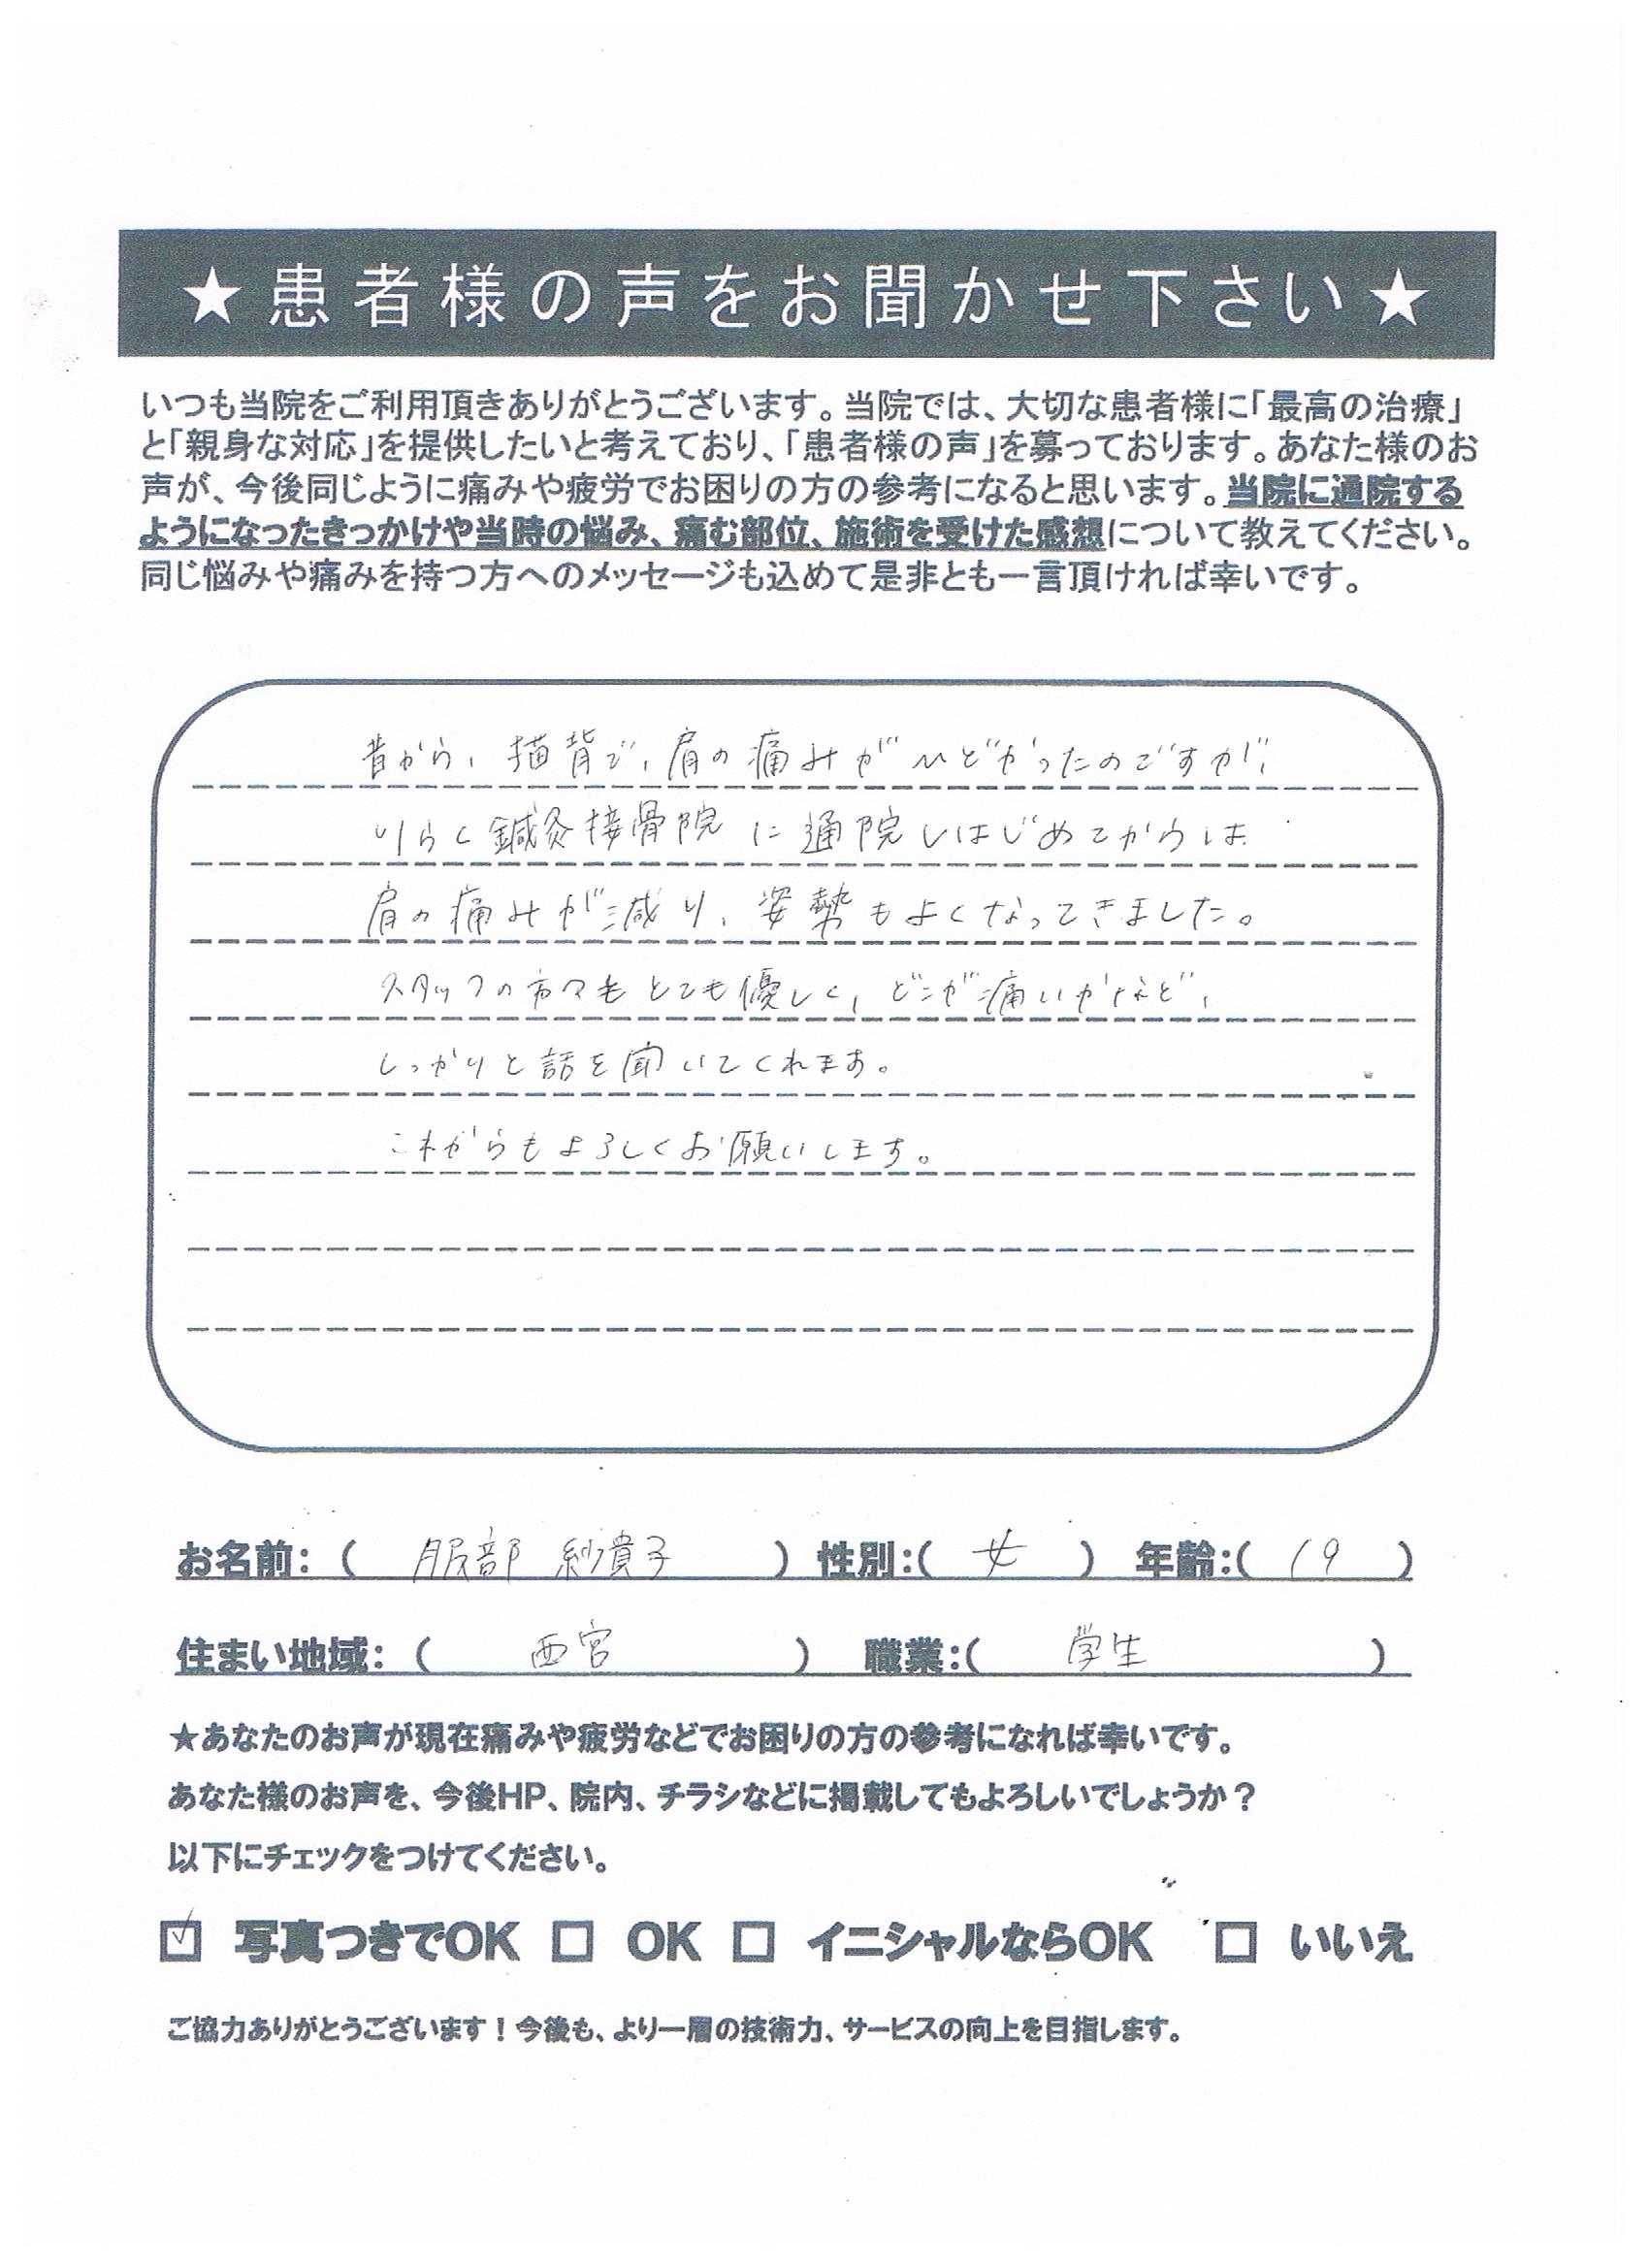 ★患者様の声をお聞かせ下さい★
いつも当院をご利用頂きありがとうございます。当院では、大切な患者様に「最高の治療」
と「親身な対応」を提供したいと考えており、「患者様の声」を募っております。あなた様のお
声が、今後同じように痛みや疲労でお困りの方の参考になると思います。当院に通院する
ようになったきっかけや当時の悩み、痛む部位、施術を受けた感想について教えてください。
同じ悩みや痛みを持つ方へのメッセージも込めて是非とも一言頂ければ幸いです。
昔から、描背で、肩の痛みがひどかったのですが、
りらく鍼灸接骨院に通院しはじめてからは
肩の痛みが減り、姿勢もよくなってきました。
スタッフの方々もとても優しく、どこが痛いかなど、
しっかりと話を聞いてくれます。
これからもよろしくお願いします。
お名前：（服部 紗貴子）性別：（女）年齢：（19）
住まい地域：（西宮）職業：（学生）
★あなたのお声が現在痛みや疲労などでお困りの方の参考になれば幸いです。
あなた様のお声を、今後HP、院内、チラシなどに掲載してもよろしいでしょうか？
以下にチェックをつけてください。
☑ 写真つきでOK □ OK □ イニシャルならOK □ いいえ
ご協力ありがとうございます！今後も、より一層の技術力、サービスの向上を目指します。